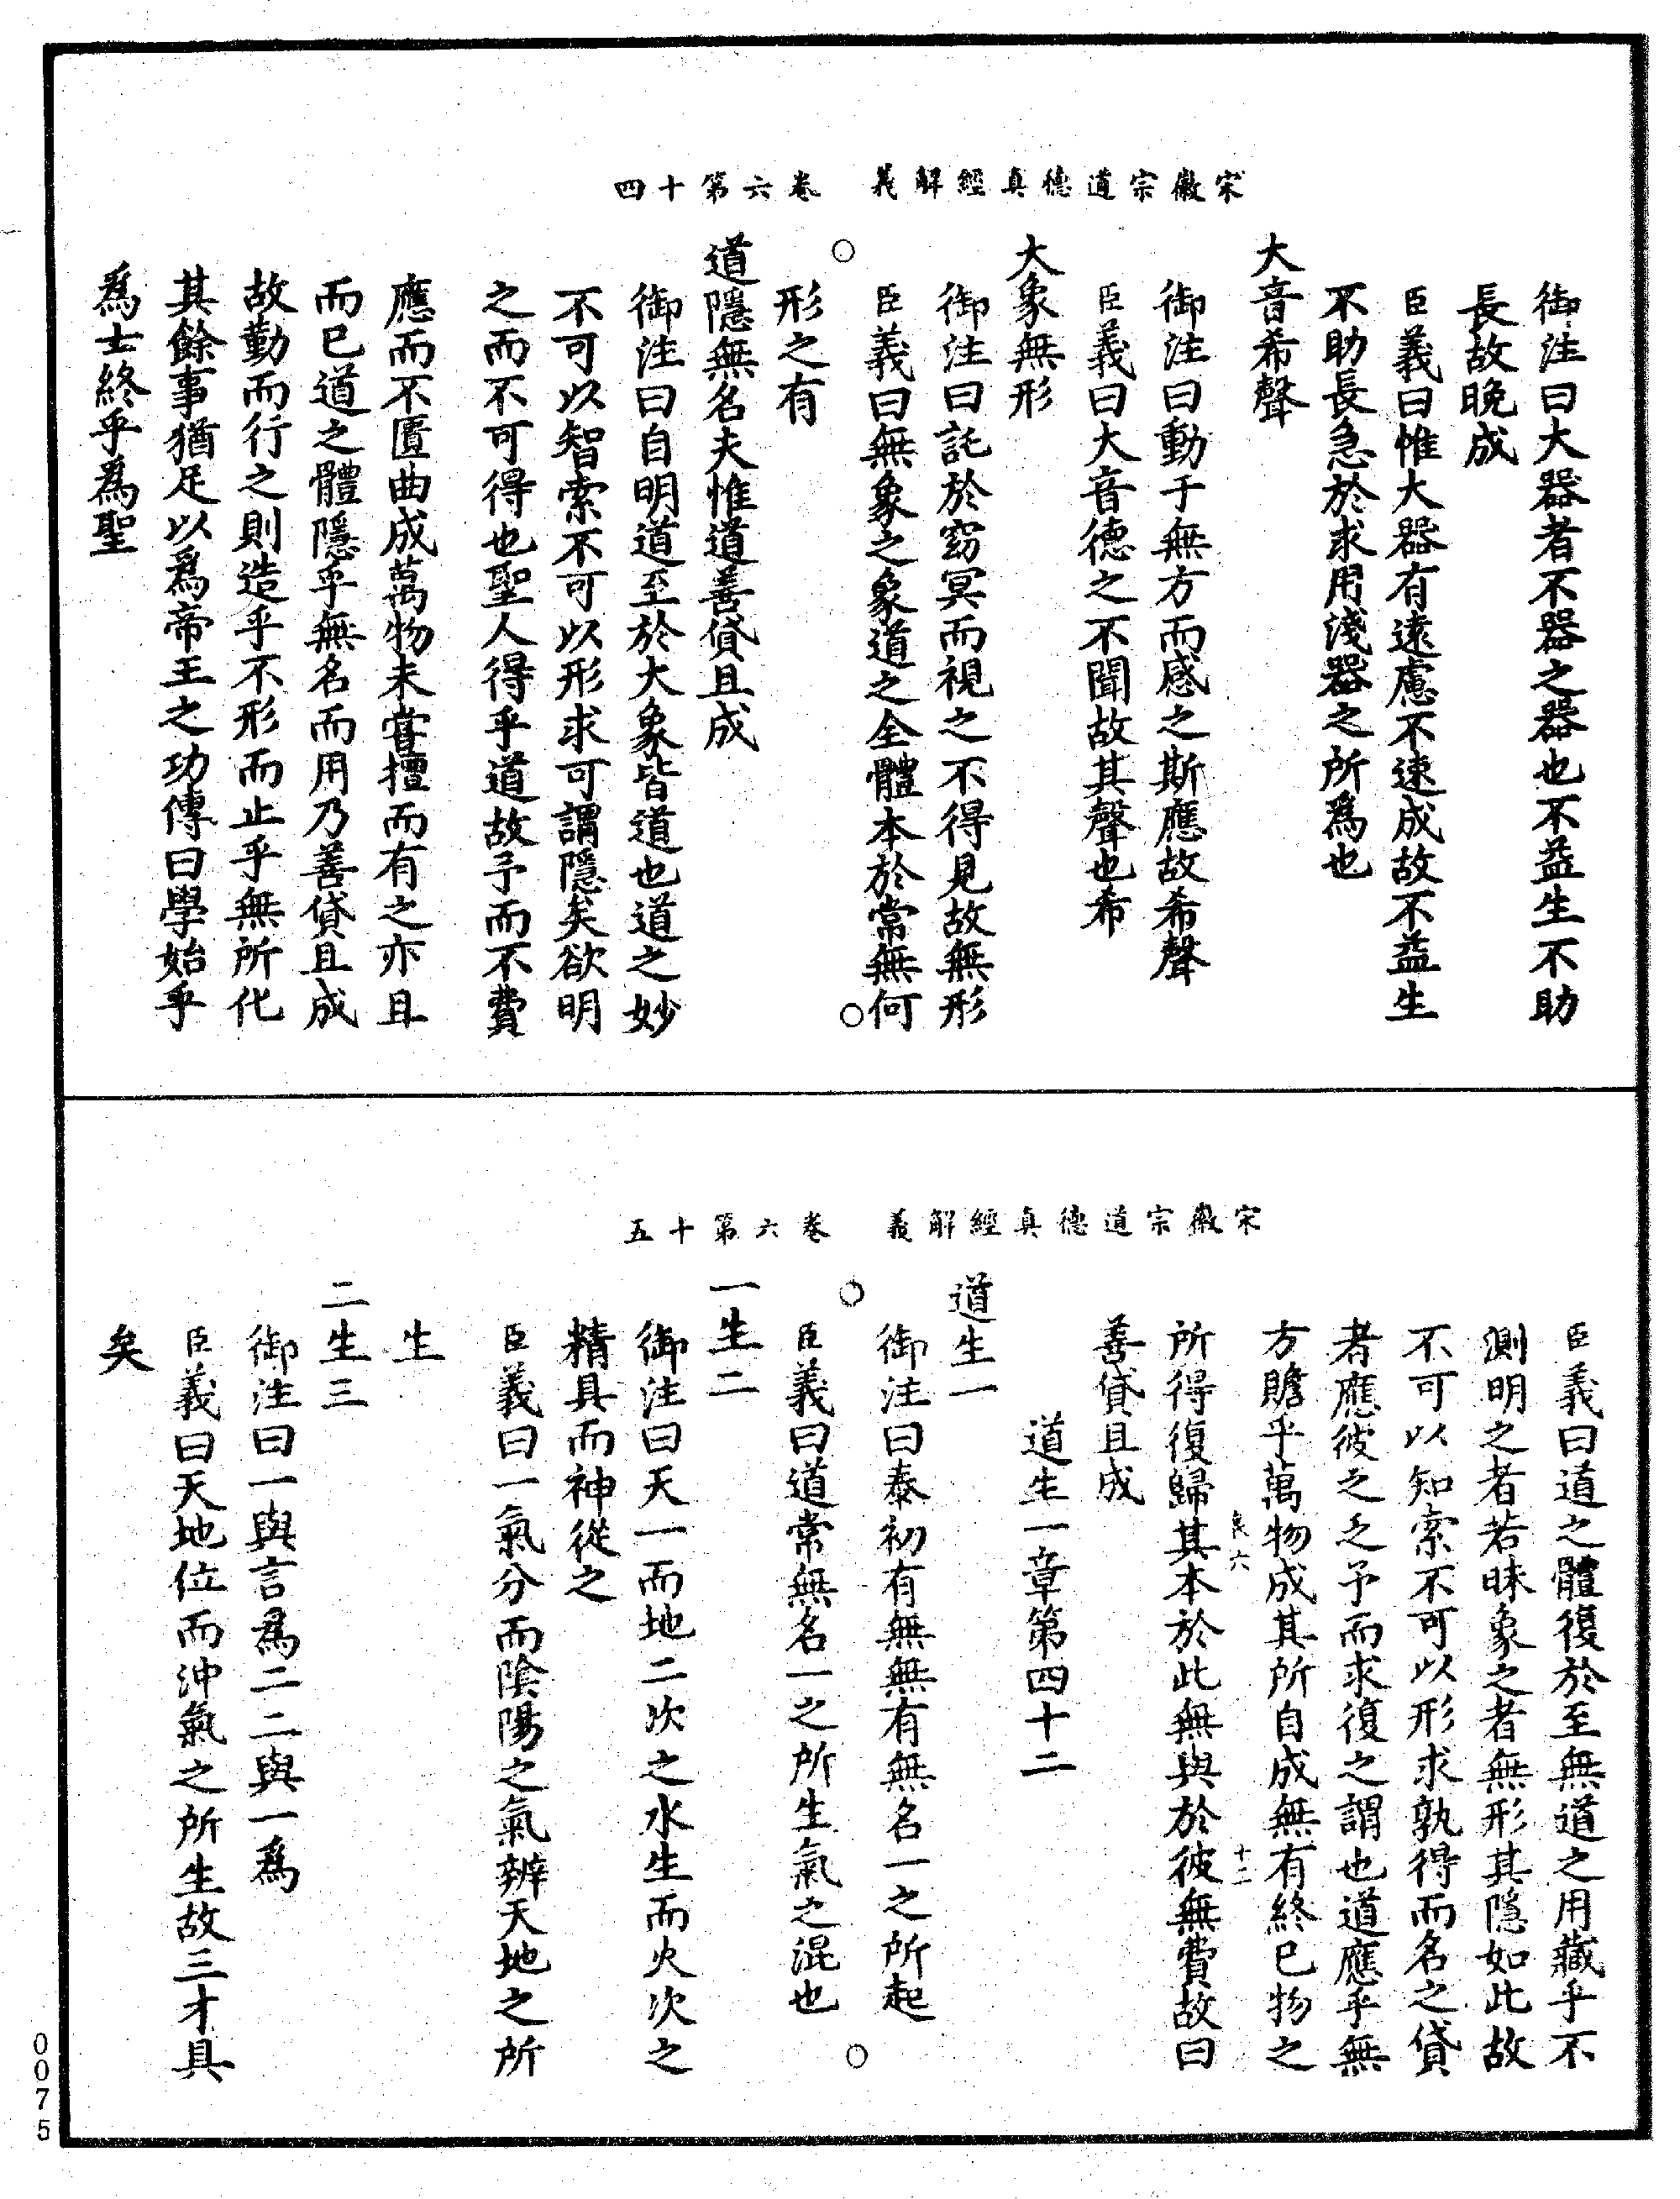 宋徽宗道德真經解義　卷六第十四
御注曰大器者不器之器也不益生不助
長故晚成
臣義曰惟大器有遠慮不速成故不益生
不助長急於求用淺器之所爲也
大音希聲
御注曰動于無方而感之斯應故希聲
臣義曰大音德之不聞故其聲也希
大象無形
御注曰託於窈冥而視之不得見故無形
臣義曰無象之象道之全體本於常無何
形之有
道隱無名夫惟道善貸且成
御注曰自明道至於大象皆道也道之妙
不可以智索不可以形求可謂隱矣欲明
之而不可得也聖人得乎道故予而不費
應而不匱曲成萬物未嘗擅而有之亦且
而已道之體隱乎無名而用乃善貸且成
故勤而行之則造乎不形而止乎無所化
其餘事猶足以爲帝王之功傳曰學始乎
爲士終乎爲聖
宋徽宗道德真經解義　卷六第十五
臣義曰道之體復於至無道之用藏乎不
測明之者若昧象之者無形其隱如此故
不可以知索不可以形求孰得而名之貸
者應彼之乏予而求復之謂也道應乎無
方贍乎萬物成其所自成無有終已物之
六　十二
所得復歸其本於此無與於彼無費故曰
善貸且成
道生一章第四十二
道生一
御注曰泰初有無無有無名一之所起
臣義曰道常無名一之所生氣之混也
一生二
御注曰天一而地二次之水生而火次之
精具而神從之
臣義曰一氣分而陰陽之氣辨天地之所
生
二生三
御注曰一與言爲二二與一爲
臣義曰天地位而沖氣之所生故三才具
矣
0075